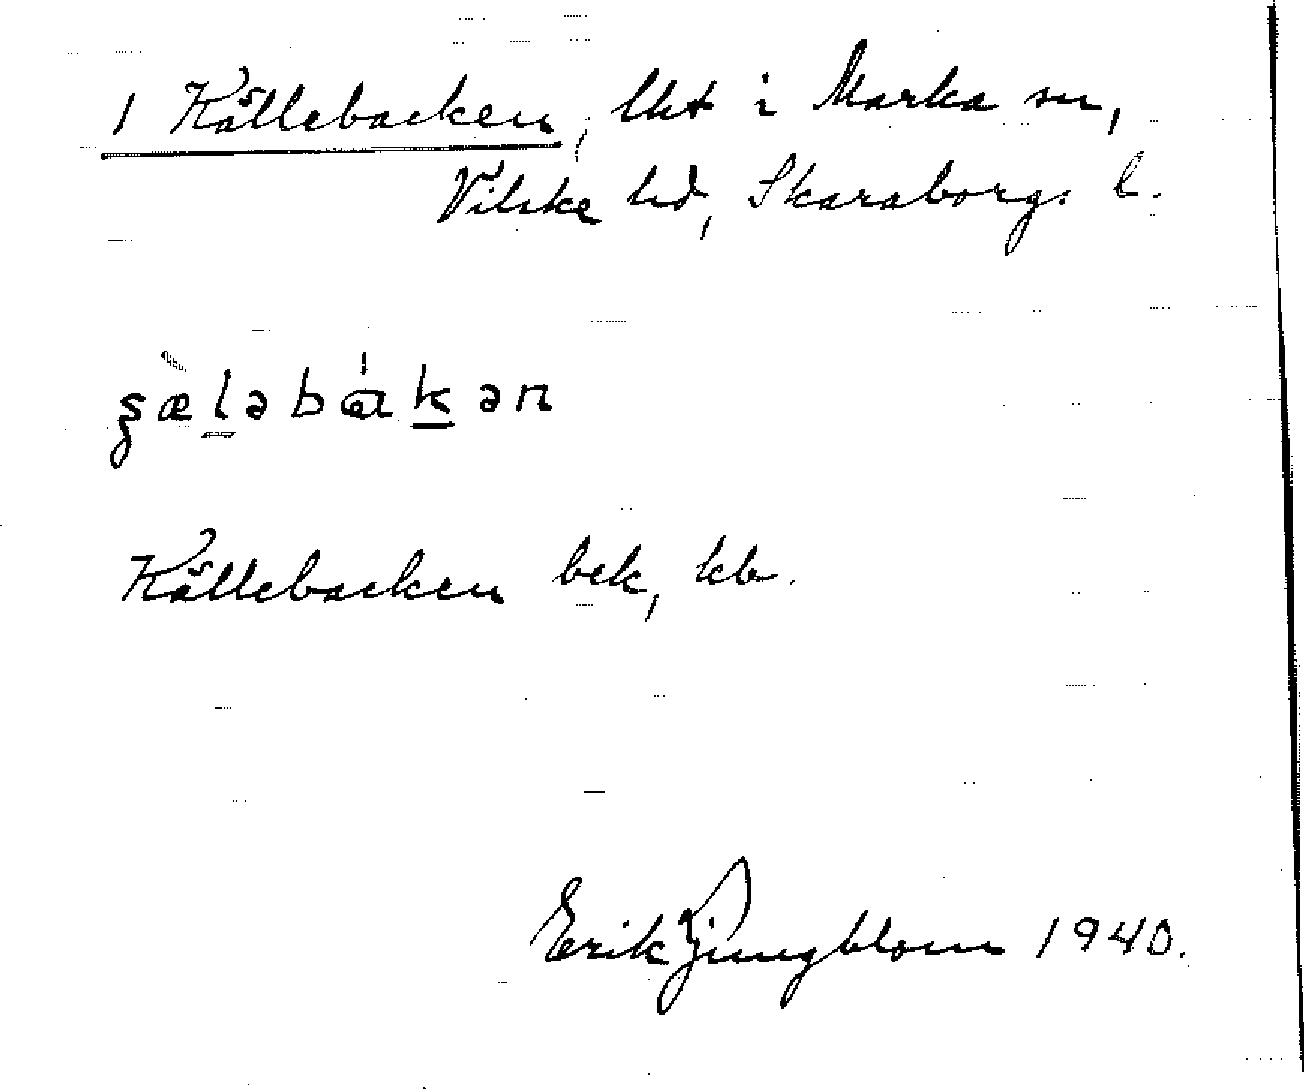 1 Källebacken, lht i Marka sn,
Vilske hd, Skaraborgs l.
Källebacken bek, kb.
Erik Ljungblom 1940.